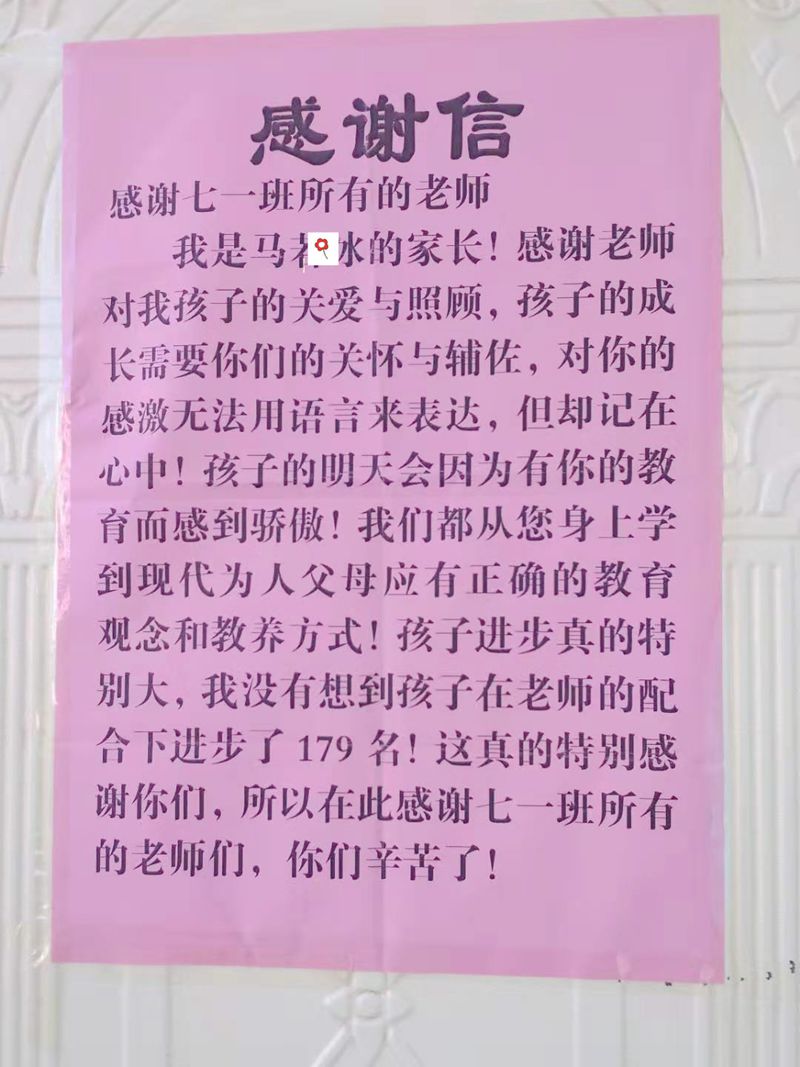 感谢信
感谢七一班所有的老师
我是马冰的家长！感谢老师
对我孩子的关爱与照顾，孩子的成
长需要你们的关怀与辅佐，对你的
感激无法用语言来表达，但却记在
心中！孩子的明天会因为有你的教
育而感到骄傲！我们都从您身上学
到现代为人父母应有正确的教育
观念和教养方式！孩子进步真的特
别大，我没有想到孩子在老师的配
合下进步了 179 名！这真的特别感
谢你们，所以在此感谢七一班所有
的老师们，你们辛苦了！